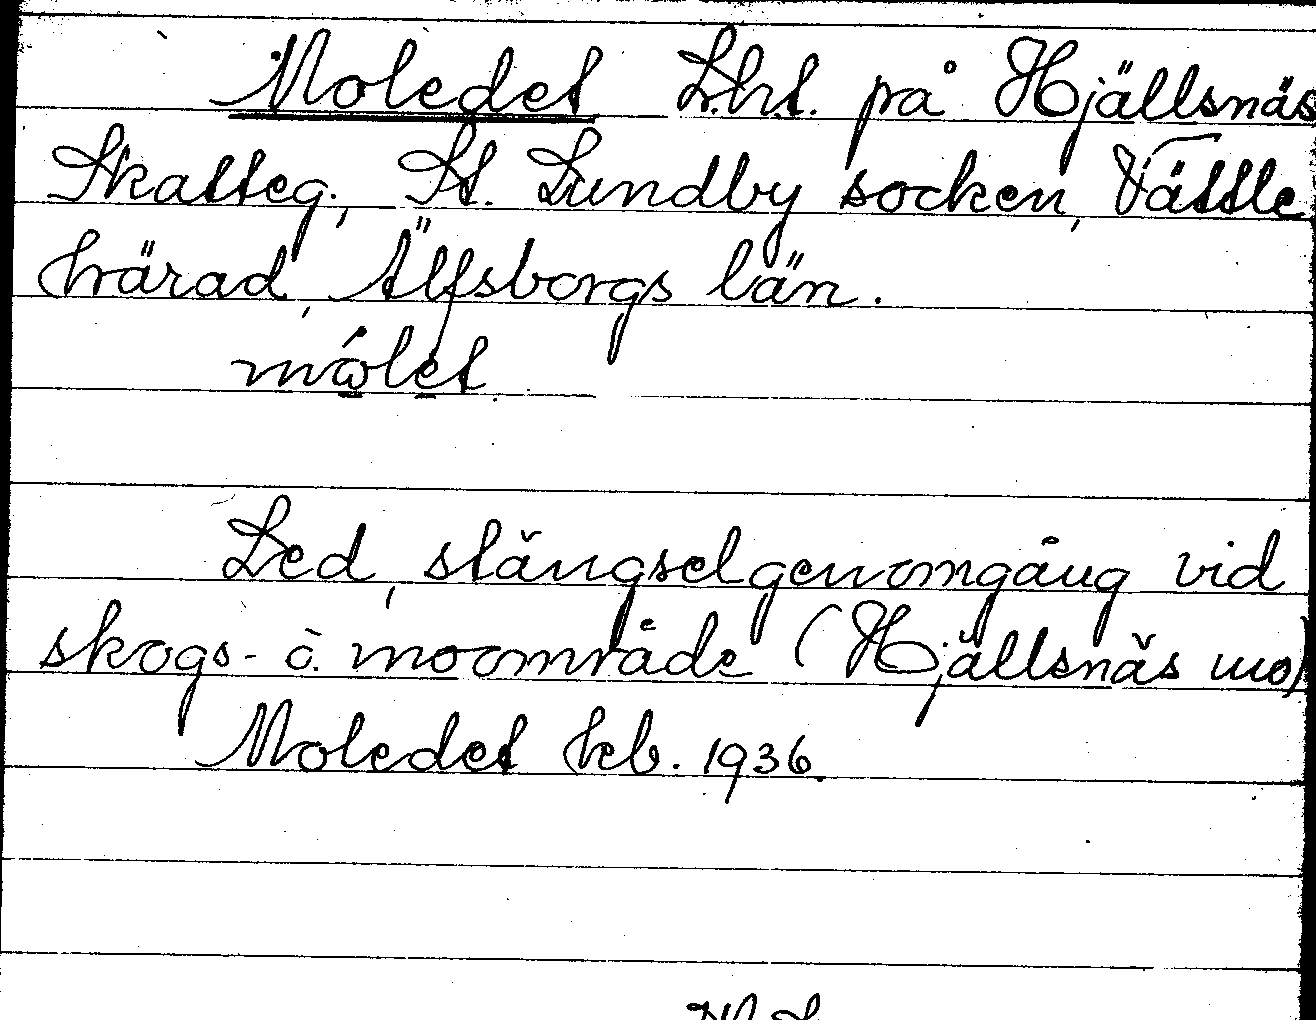 Moledet L.h.t. på Hjällsnäs
Skatteg., St. Lundby socken, Vättle
härad, Älfsborgs län.
mólet
Led, stängselgenomgång vid
skogs- o. moområde (Hjällsnäs mo)
Moledet heb. 1936.